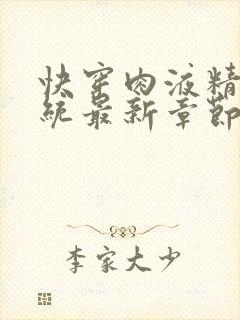 快穿肉液精
统最新章节
李家大少